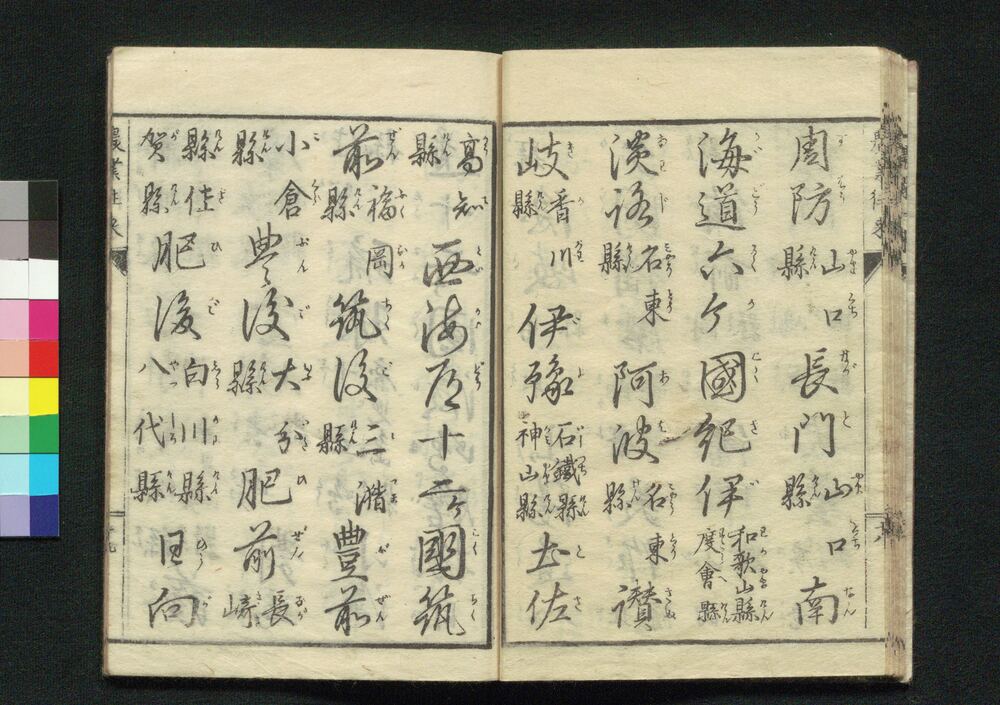 周防山口縣長門山口縣南
海道六ケ國紀伊和歌山縣度會縣
淡路名東縣阿波名東縣讃
岐香川縣伊豫石鐵縣神山縣土佐
高知縣西海道十二ケ國筑
前福岡縣筑後三瀦縣豊前
小倉縣豊後大分縣肥前長崎
縣佐賀縣肥後白川縣八代縣日向
農業往来